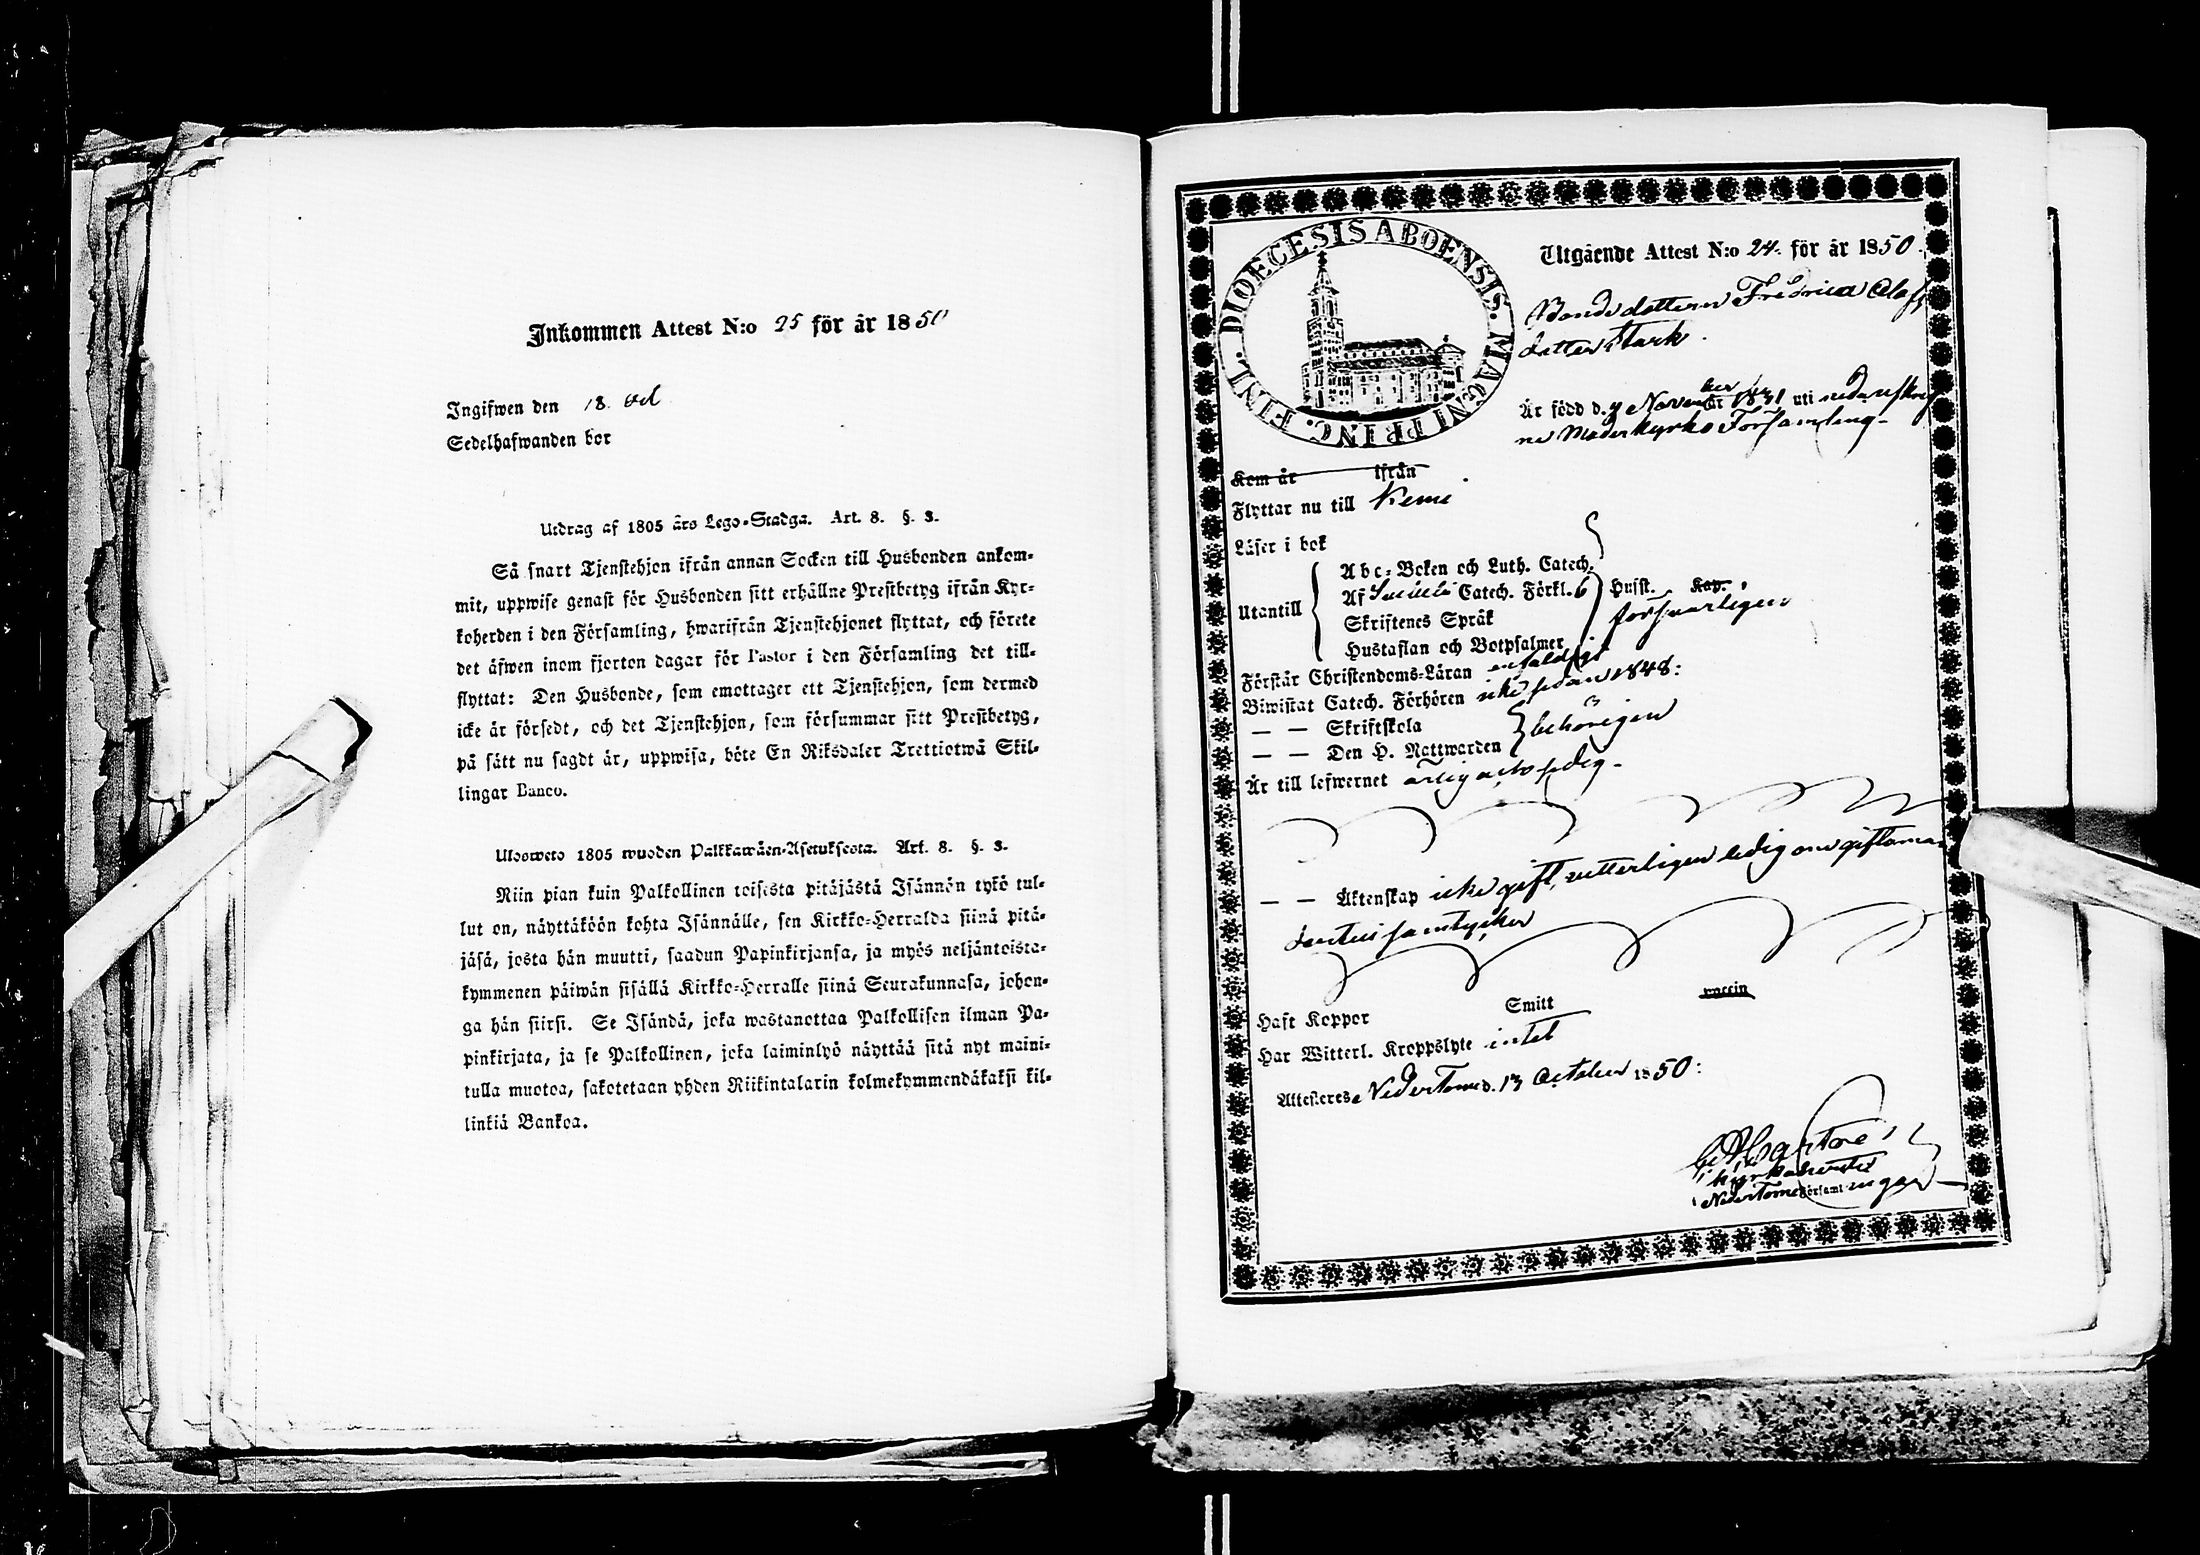 Inkommen Attest N:o 25 för år 1850
Ingifwen den 18 Oct
Sedelhafwanden bor
Utdrag af 1805 års Lego-Stadga. Art. 8. §. 3.
Så snart Tjenstehjon ifrån annan Socken till Husbonden ankom-
mit, uppwise genast för Husbonden sitt erhållne Prestbetyg ifrån Kyr-
koherden i den Församling, hwarifrån Tjenstehjonet flyttat, och förete
det äfwen inom fjorton dagar för Pastor i den Församling det till-
flyttat: Den Husbonde, som emottager ett Tjenstehjon, som dermed
icke är försedt, och det Tjenstehjon, som försummar sitt Prestbetyg,
på sätt nu sagdt är, uppwisa, böte En Riksdaler Trettiotwå Skil-
lingar Banco.
Ulosweto 1805 wuoden Palkkawäen-Asetuksesta. Art. 8. §. 3.
Niin pian kuin Palkollinen toisesta pitäjästä Isännön tykö tul-
lut on, näyttäköön kohta Isännälle, sen Kirkko-Herralda siinä pitä-
jäsä, josta hän muutti, saadun Papinkirjansa, ja myös neljäntoista-
kymmenen päiwän sisällä Kirkko-Herralle siinä Seurakunnasa, johon-
ga hän siirsi. Se Isändä, joka wastanottaa Palkollisen ilman Pa-
pinkirjata, ja se Palkollinen, joka laiminlyö näyttää sitä nyt maini-
tulla muotoa, sakotetaan yhden Riikintalarin kolmekymmendäkaksi kil-
linkiä Bankoa.
DIOECESIS ABOENSIS. MAGNI PRINC. FINL.
Utgående Attest N:o 24. för år 1850.
Bondedottern Fredrica Olofs
dotter Stark.
Är född d. 9 November 1831 uti nedanskref
ne Moderkyrko Församling.
Kom år ifrån
Flyttar nu till Kemi
Läser i bok
Abc-Boken och Luth. Catech.
Utantill Af Catech. Förkl. 6 Husst. Kap.
Skriftenes Språk försvarligen
Hustaflan och Botpsalmer
Förstår Christendoms-Läran enfaldigt
Biwistat Catech. Förhören icke sedan 1848:
— — Skriftskola behörigen
— — Den H. Nattwarden
Är till lefwernet ärlig och sedig.
— — Äktenskap icke gift, vetterligen ledig om giftoman
samtycker
Haft Koppor Smitt vaccin
Har Witterl. Kroppslyte intet
Attesteres Nedertorneå d. 13 October 1850: